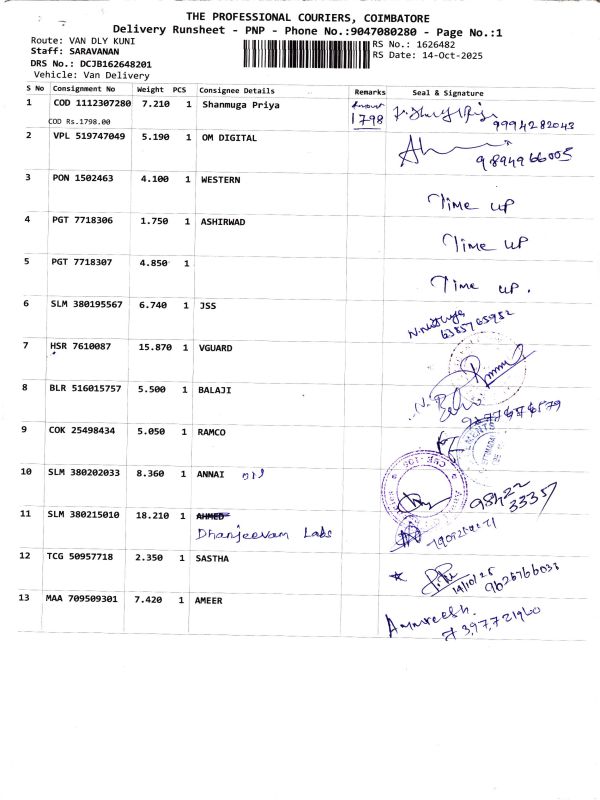 THE PROFESSIONAL COURIERS, COIMBATORE
Delivery Runsheet - PNP - Phone No.:9047080280 - Page No.:1
Route: VAN DLY KUNI
RS No.: 1626482
Staff: SARAVANAN
RS Date: 14-Oct-2025
DRS No.: DCJB162648201
Vehicle: Van Delivery
S No Consignment No Weight PCS Consignee Details Remarks Seal & Signature
1 COD 1112307280 7.210 1 Shanmuga Priya 1798 9994282043
COD Rs.1798.00
2 VPL 519747049 5.190 1 OM DIGITAL 9894966005
3 PON 1502463 4.100 1 WESTERN Time up
4 PGT 7718306 1.750 1 ASHIRWAD Time up
5 PGT 7718307 4.850 1 Time up.
6 SLM 380195567 6.740 1 JSS
7 HSR 7610087 15.870 1 VGUARD
8 BLR 516015757 5.500 1 BALAJI
9 COK 25498434 5.050 1 RAMCO
10 SLM 380202033 8.360 1 ANNAI 98422
33357
11 SLM 380215010 18.210 1 AHMED
Dhanjeevam Labs
12 TCG 50957718 2.350 1 SASTHA
14/10/25
13 MAA 709509301 7.420 1 AMEER